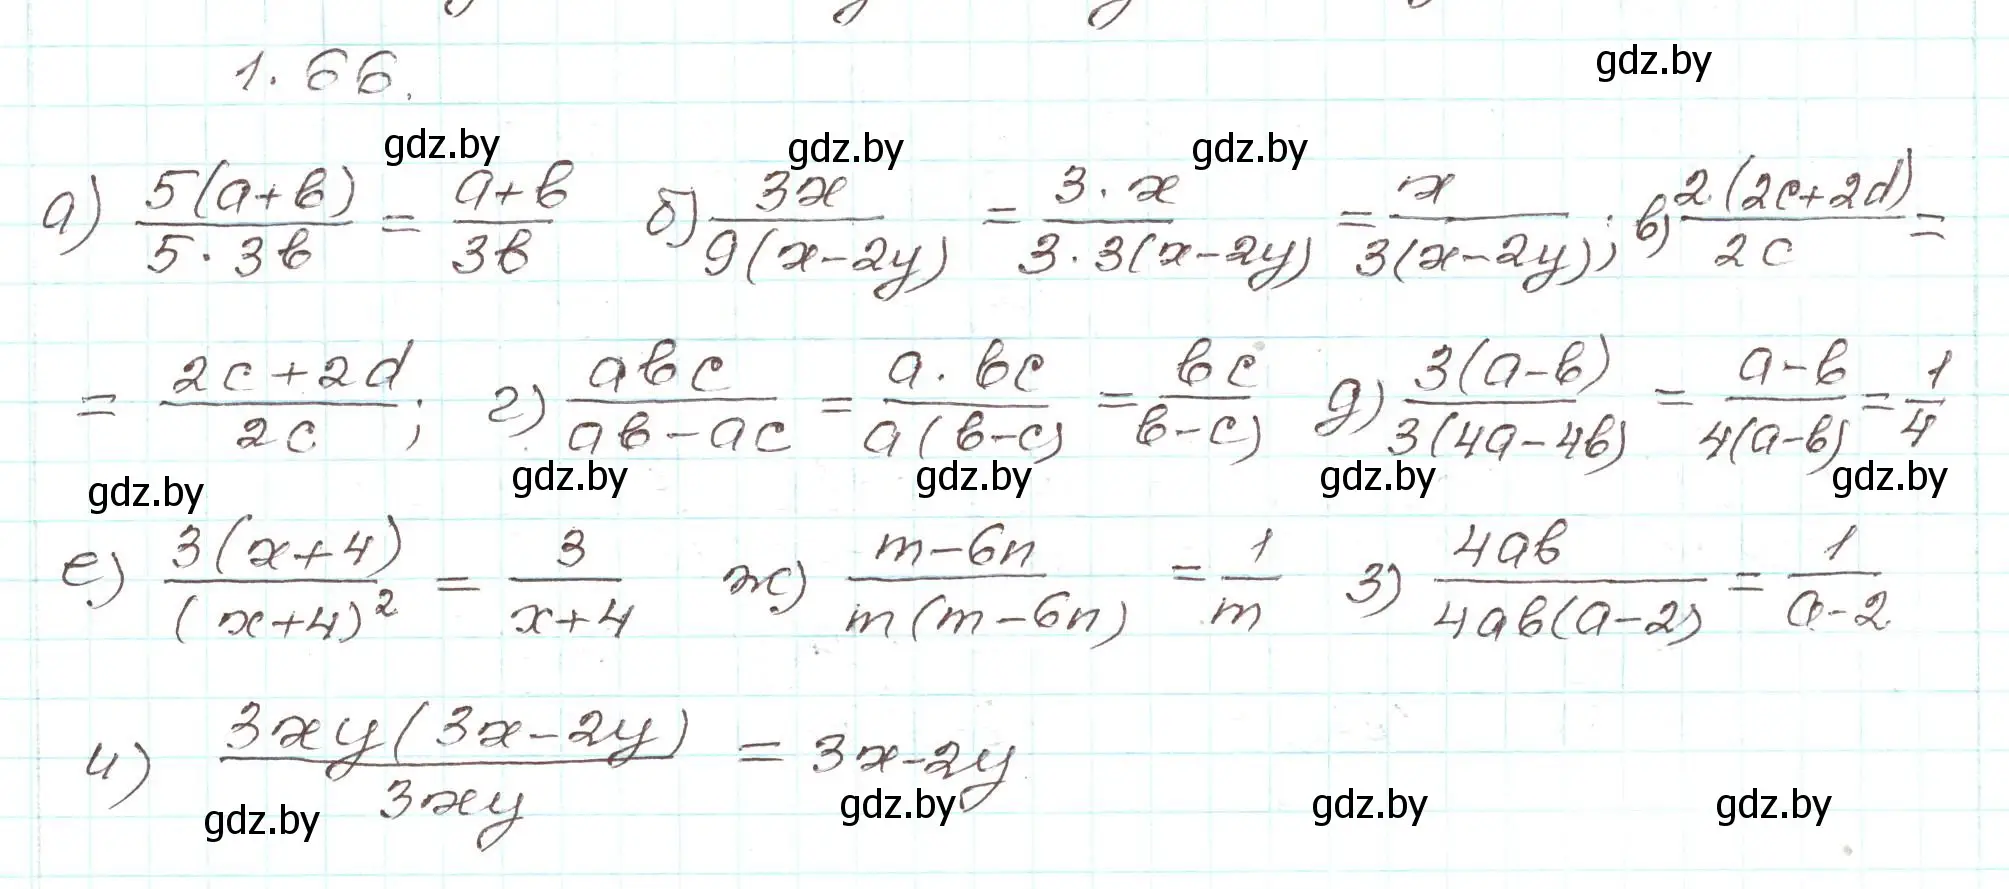 1.66.
gdz.by
gdz.by gdz.by gdz.by
а) 5(a+b)/(5·3b) = (a+b)/(3b) б) 3x/(9(x-2y)) = (3·x)/(3·3(x-2y)) = x/(3(x-2y)); в) 2(2c+2d)/(2c) =
= (2c+2d)/(2c); г) abc/(ab-ac) = (a·bc)/(a(b-c)) = bc/(b-c) д) 3(a-b)/(3(4a-4b)) = (a-b)/(4(a-b)) = 1/4
gdz.by gdz.by gdz.by gdz.by gdz.by
е) 3(x+4)/(x+4)² = 3/(x+4) ж) (m-6n)/(m(m-6n)) = 1/m з) 4ab/(4ab(a-2)) = 1/(a-2)
и) 3xy(3x-2y)/(3xy) = 3x-2y
gdz.by gdz.by gdz.by gdz.by